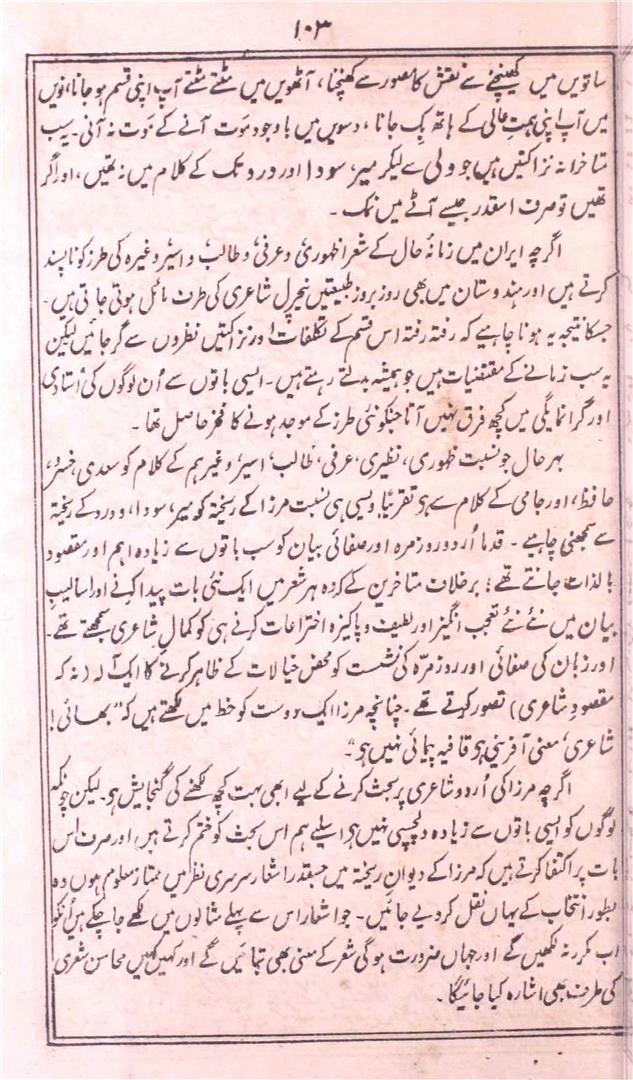 ۱۰۳
ساتویں میں کھینچنے سے نقش کا مصور سے کھنچنا، آٹھویں میں مٹتے مٹتے آپ اپنی قسم ہو جانا، نویں
میں آپ اپنی ہمتِ عالی کے ہاتھ بک جانا، دسویں میں باوجود موت آنے کے موت نہ آنی۔ یہ سب
متاخرانہ نزاکتیں ہیں جو ولی سے لیکر میر، سودا اور درد تک کے کلام میں نہ تھیں، اور اگر
تھیں تو صرف اسقدر جیسے آٹے میں نمک۔
اگرچہ ایران میں زمانۂ حال کے شعرا ظہوری و عرفی و طالب و اسیر وغیرہ کی طرز کو ناپسند
کرتے ہیں اور ہندوستان میں بھی روز بروز طبیعتیں نیچرل شاعری کی طرف مائل ہوتی جاتی ہیں۔
جسکا نتیجہ یہ ہونا چاہیے کہ رفتہ رفتہ اس قسم کے تکلفات اور نزاکتیں نظروں سے گر جائیں لیکن
یہ سب زمانے کے مقتضیات ہیں جو ہمیشہ بدلتے رہتے ہیں۔ ایسی باتوں سے اُن لوگوں کی اُستادی
اور گرانمایگی میں کچھ فرق نہیں آتا جنکو نئی طرز کے موجد ہونے کا فخر حاصل تھا۔
بہرحال جو نسبت ظہوری، نظیری، عرفی، طالب، اسیر وغیرہم کے کلام کو سعدی، خسرو،
حافظ، اور جامی کے کلام سے ہے تقریباً ویسی ہی نسبت مرزا کے ریختہ کو میر، سودا، و درد کے ریختہ
سے سمجھنی چاہیے۔ قدما اُردو روزمرہ اور صفائی بیان کو سب باتوں سے زیادہ اہم اور مقصود
بالذات جانتے تھے؛ برخلاف متاخرین کے کہ وہ ہر شعر میں ایک نئی بات پیدا کرنے اور اسالیبِ
بیان میں نئے نئے تعجب انگیز اور لطیف و پاکیزہ اختراعات کرنے ہی کو کمالِ شاعری سمجھتے تھے۔
اور زبان کی صفائی اور روزمرہ کی نشست کو محض خیالات کے ظاہر کرنے کا ایک آلہ (نہ کہ
مقصودِ شاعری) تصور کرتے تھے۔ چنانچہ مرزا ایک دوست کو خط میں لکھتے ہیں کہ "بھائی!
شاعری معنی آفرینی ہے قافیہ پیمائی نہیں ہے"۔
اگرچہ مرزا کی اُردو شاعری پر بحث کرنے کے لیے ابھی بہت کچھ لکھنے کی گنجایش ہے۔ لیکن چونکہ
لوگوں کو ایسی باتوں سے زیادہ دلچسپی نہیں ہے اسلیے ہم اس بحث کو ختم کرتے ہیں اور صرف اس
بات پر اکتفا کرتے ہیں کہ مرزا کے دیوانِ ریختہ میں جسقدر اشعار سرسری نظر میں ممتاز معلوم ہوں وہ
بطور انتخاب کے یہاں نقل کر دیے جائیں۔ جو اشعار اس سے پہلے مثالوں میں لکھے جا چکے ہیں اُنکو
اب مکرر نہ لکھیں گے اور جہاں ضرورت ہوگی شعر کے معنی بھی بتائیں گے اور کہیں کہیں محاسنِ شعری
کی طرف بھی اشارہ کیا جائیگا۔